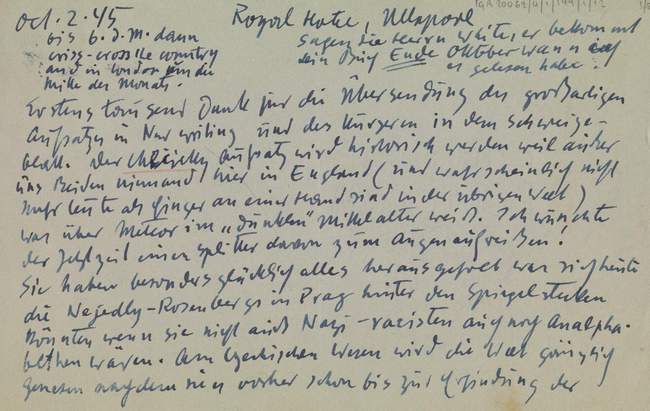 Oct. 2. 45 Royal Hotel, Ullapool
bis 6. d. M. dann
criss-cross the country
und in London um die
Mitte des Monats.
Sagen Sie Herrn White, er bekommt
sein Buch Ende Oktober wann ich
es gelesen habe.
Erstens tausend Dank für die Übersendung des großartigen
Aufsatzes in New writing und des kürzeren in dem Schweize-
blatt. Der Aufsatz wird historisch werden weil außer
uns Beiden niemand hier in England (und wahrscheinlich nicht
mehr Leute als Finger an einer Hand sind in der übrigen Welt)
was über Meteor im „dunklen" Mittelalter weiß. Ich wünschte
der Jetztzeit einen Splitter davon zum Augenaufreißen!
Sie haben besonders glücklich alles herausgeholt was sich heute
die Nejedly-Rosenbergs in Prag hinter den Spiegel stecken
könnten wenn sie nicht auch Nazi-racisten auch noch Analpha-
bethen wären. Am tschechischen Wesen wird die Welt gänzlich
genesen nachdem sie vorher schon bis zur Erfindung der